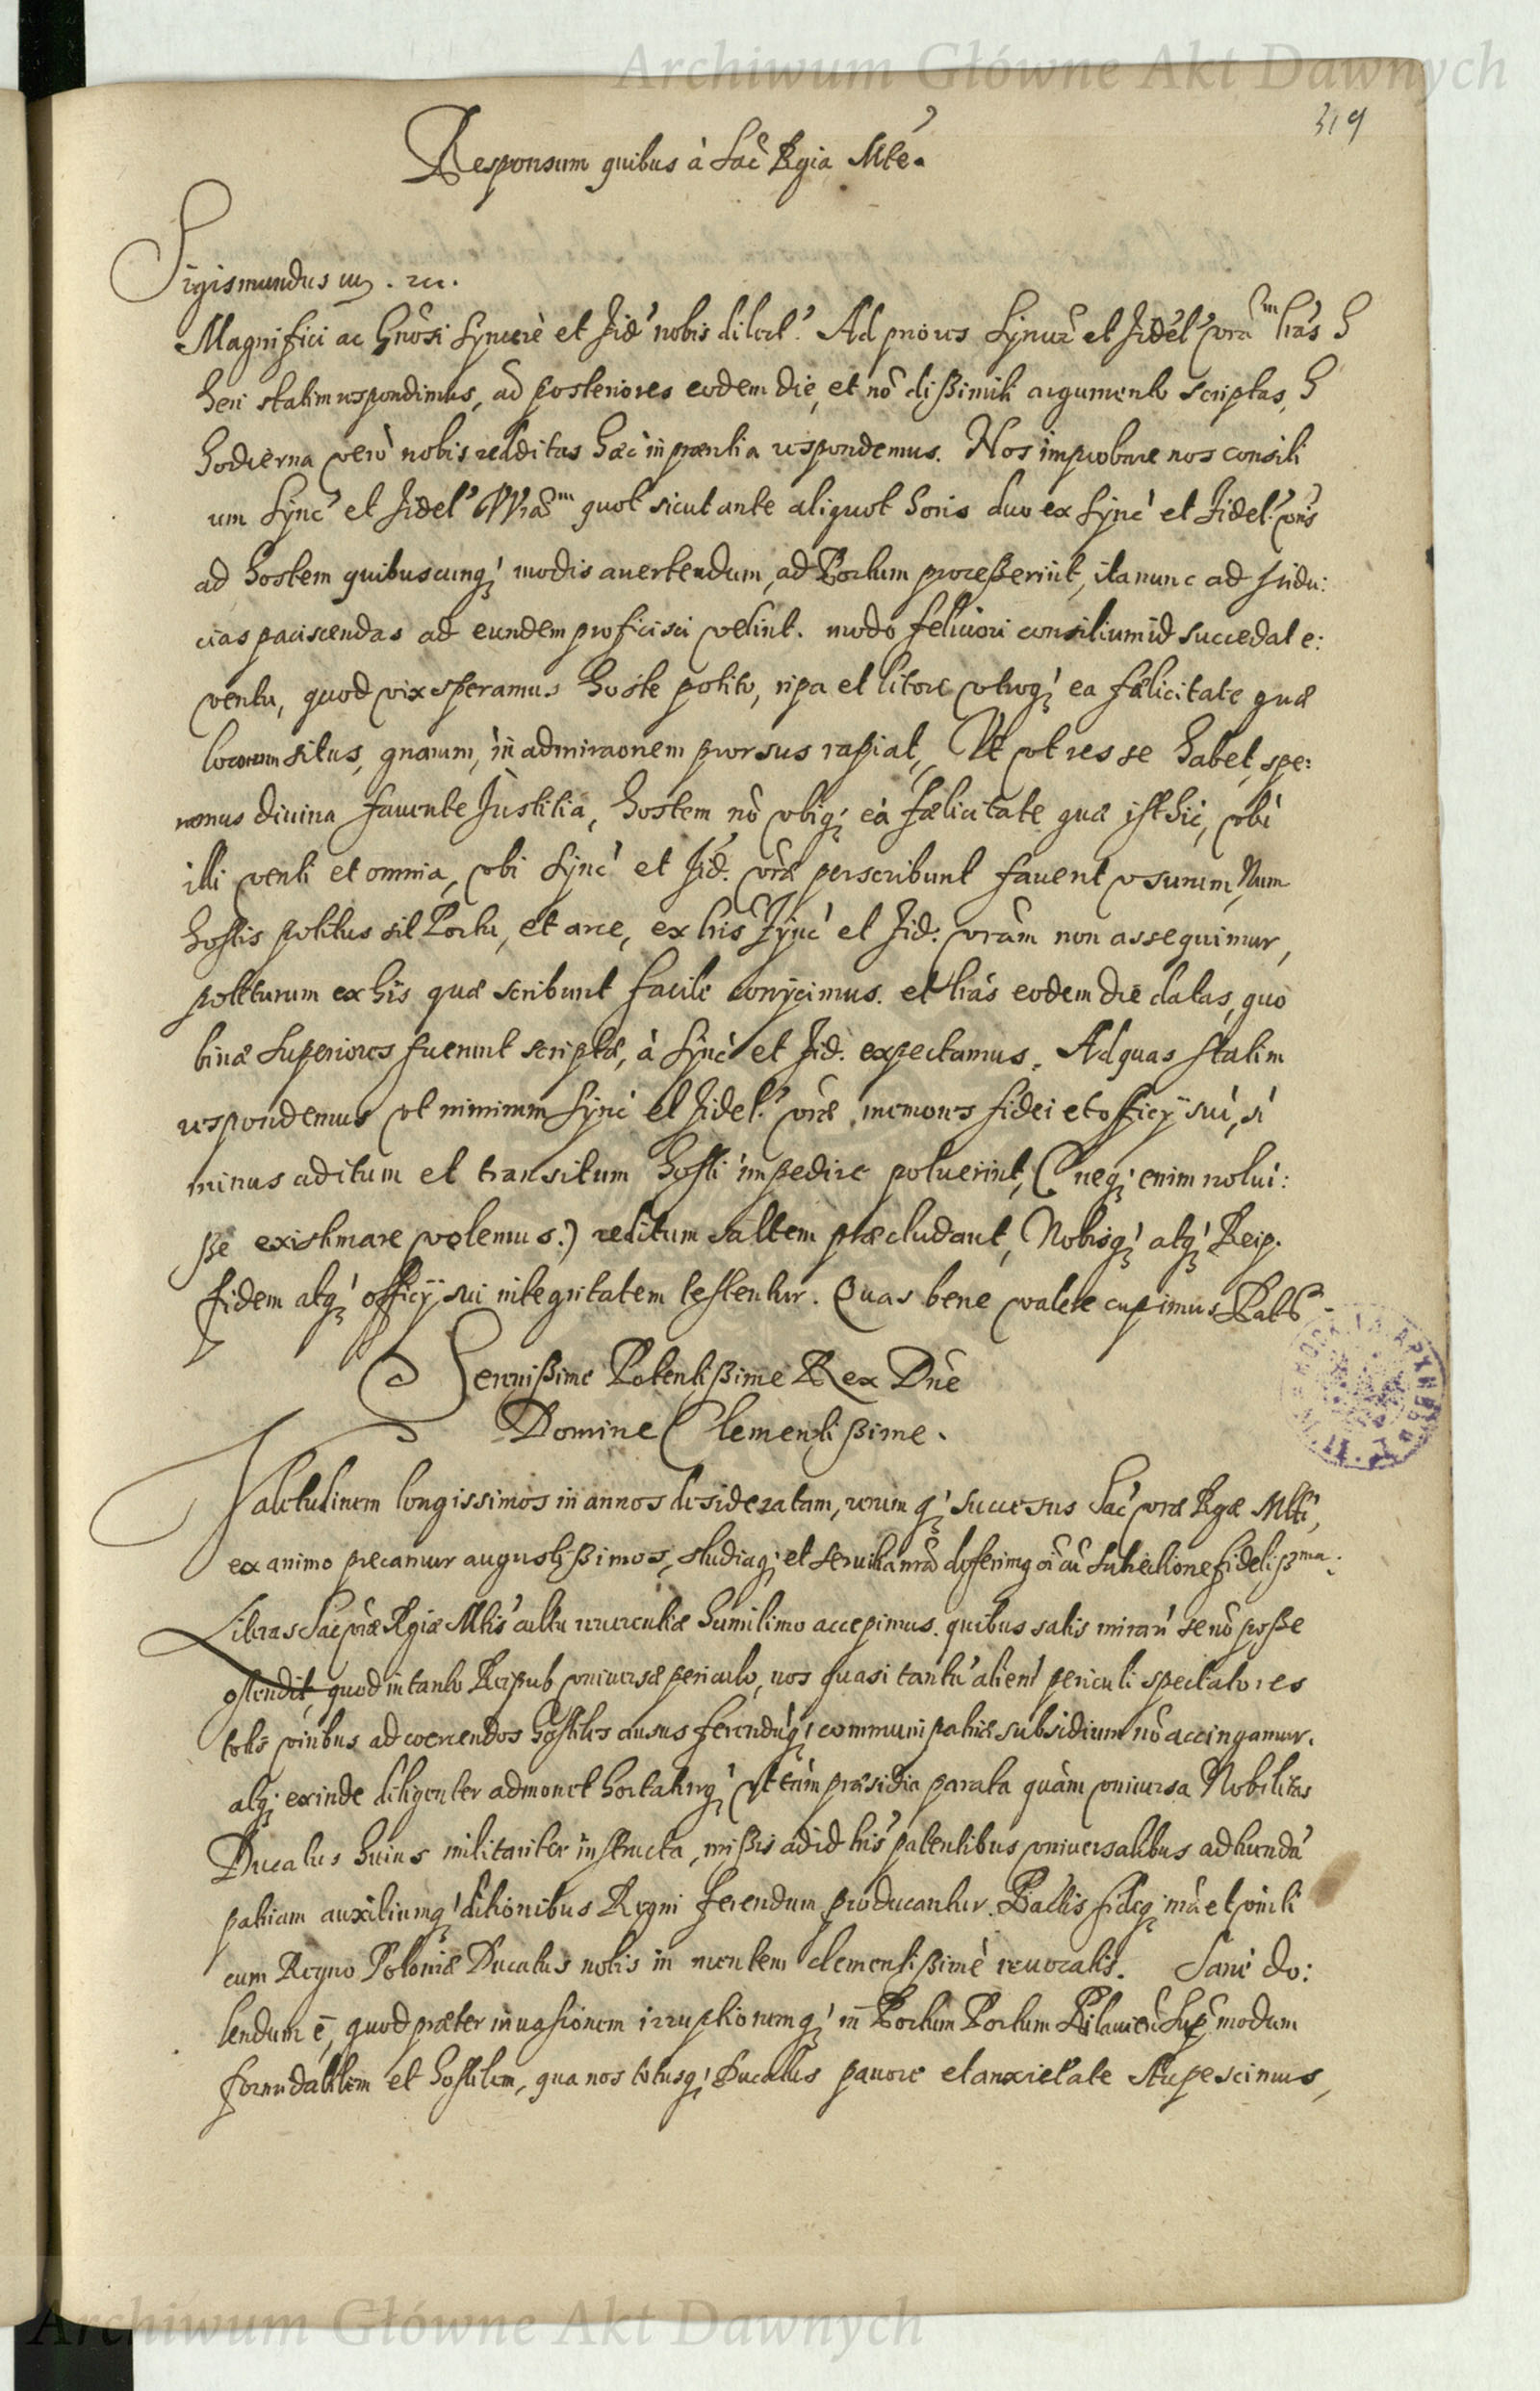 Archiwum Główne Akt Dawnych
319
Responsum quibus à Sac̃ Rgia Mte.
Sigismundus III. rcc.
Magnifici ac Gñosi Syncerè et Fid' nobis dilect'. Ad priores Syncer̃ et Fidel' vrãm lrãs
heri statim respondimus, ad posteriores eodem die, et nõ dißimili argumento scriptas,
hodierna verò nobis redditas hæc in præntia respondemus. Nos improbare nos consili
um Sync' et Fidel' Vrãm quot sicut ante aliquot horis duo ex Sync' et Fidel' vris
ad hostem quibuscunq' modis auertendum, ad Portum proceßerint, ita nunc ad Indu:
cias paciscendas ad eundem proficisci velint. modo feliciori consilium id succedat e:
ventu, quod vix speramus hoste potito, ripa et litore vtroq' ea fælicitate quæ
locorum situs, gnarum, in admiraonem prorsus rapiat, Vt vt res se habet, spe:
remus diuina fauente Justitia, hostem nõ vbiq' eà fælicitate quæ isthic, vbi
illi venti et omnia, vbi Sync' et Fid. vræ perscribunt fauent vsurum, Num
hostis potitus sit Portu, et arce, ex lris Sync' et Fid: vrãm non assequimur,
potiturum ex hïs quæ scribunt facile conÿcimus. et lrãs eodem die datas, quo
binæ superiores fuerunt scriptæ, à Sync' et Fid. expectamus. Ad quas statim
respondemus vt nimirum Sync' et Fidel' vræ memores fidei et officÿ sui, si
minus aditum et transitum hosti impedire potuerint, (neq' enim nolui:
ße existimare volemus.) reditum saltem præcludant, Nobisq' atq' Reip.
fidem atq' officÿ sui integritatem testentur. Quas bene valere cupimus. Datt
Serenißime Potentißime Rex Dñe
Domine Clementißime.
Valetudinem longissimos in annos desideratam, rerumq' successus Sac' vræ Rgæ Mtti,
ex animo precamur augustißimos, studiaq' et seruitia nrã deferimq oĩ cũ subiectione fidelißma.
Litteras Sac' vræ Rgiæ Mtis cultu reuerentiæ humilimo accepimus. quibus satis mirari se nõ poße
ostendit, quod in tanto Reipub vniuersæ periculo, nos quasi tantũ alieni periculi spectatores
totis viribus ad coercendos hostiles ausus ferendũq' communi patriæ subsidium nõ accingamur.
atq' exinde diligenter admonet hortaturq' Vt tàm præsidia parata quàm vniuersa Nobilitas
Ducatus huius militariter instructa, mißis ad id lris patentibus vniuersalibus ad tuendã
patriam auxiliumq' ditionibus Regni ferendum producantur. Pactis fideq' nrã et vincli
cum Regno Poloniæ Ducatus nobis in mentem clementißimè reuocatis. Sanè do:
lendum ẽ, quod præter inuasionem irruptionemq' in Portum Portum Pilauieñ sup' modum
formidabilem et hostilem, qua nos totusq' Ducatus pauore et anxietate stupescimus,
Archiwum Główne Akt Dawnych